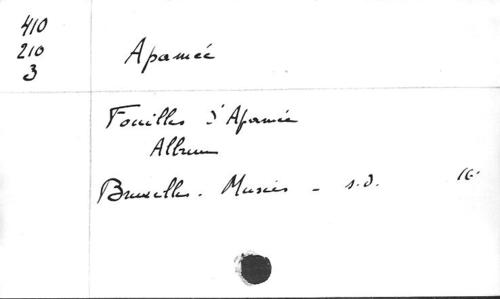 410
210
3
Apamée
Fouilles d'Apamée
Album
Bruxelles - Musées - s.d.